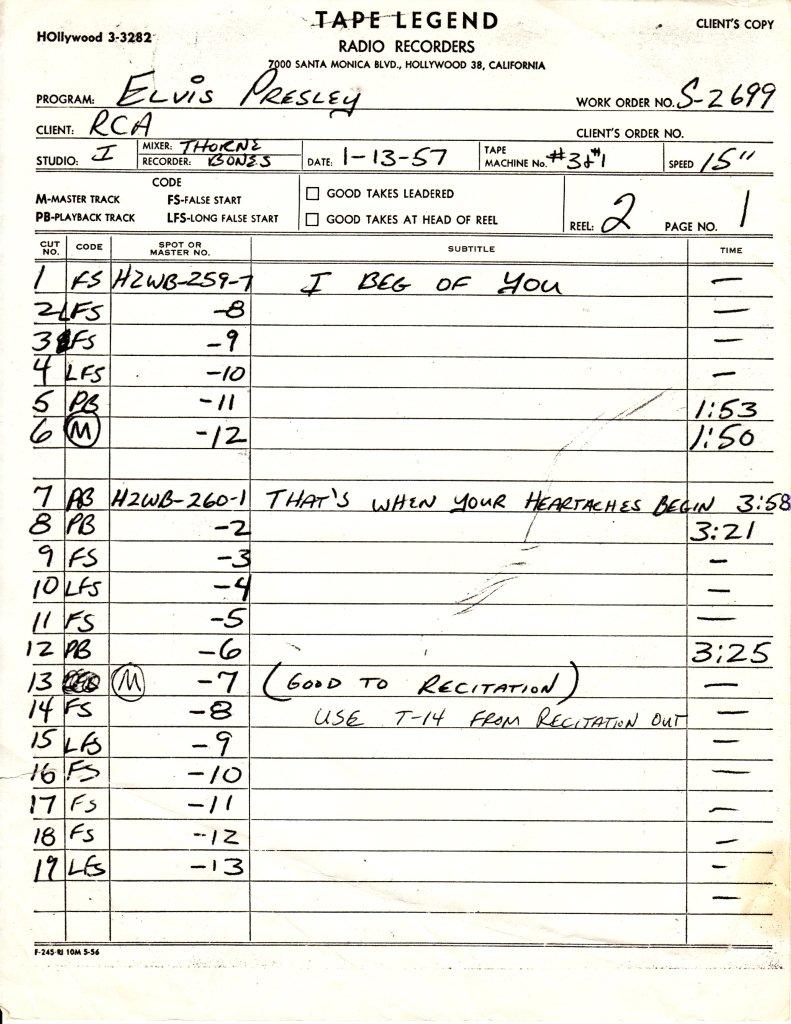 TAPE LEGEND
CLIENT'S COPY
HOllywood 3-3282
RADIO RECORDERS
7000 SANTA MONICA BLVD., HOLLYWOOD 38, CALIFORNIA
PROGRAM: ELVIS PRESLEY WORK ORDER NO. S-2699
CLIENT: RCA CLIENT'S ORDER NO.
STUDIO: I MIXER: THORNE RECORDER: BONES DATE: 1-13-57 TAPE MACHINE No. #3&#1 SPEED 15"
CODE
M-MASTER TRACK FS-FALSE START
PB-PLAYBACK TRACK LFS-LONG FALSE START
GOOD TAKES LEADERED
GOOD TAKES AT HEAD OF REEL
REEL: 2 PAGE NO. 1
CUT NO. CODE SPOT OR MASTER NO. SUBTITLE TIME
1 FS H2WB-259-7 I BEG OF YOU —
2 LFS -8 —
3 FS -9 —
4 LFS -10 —
5 PB -11 1:53
6 M -12 1:50
7 PB H2WB-260-1 THAT'S WHEN YOUR HEARTACHES BEGIN 3:58
8 PB -2 3:21
9 FS -3 —
10 LFS -4 —
11 FS -5 —
12 PB -6 3:25
13 M -7 (GOOD TO RECITATION) —
14 FS -8 USE T-14 FROM RECITATION OUT —
15 LFS -9 —
16 FS -10 —
17 FS -11 —
18 FS -12 —
19 LFS -13 -
—
F-245-RI 10M 5-56